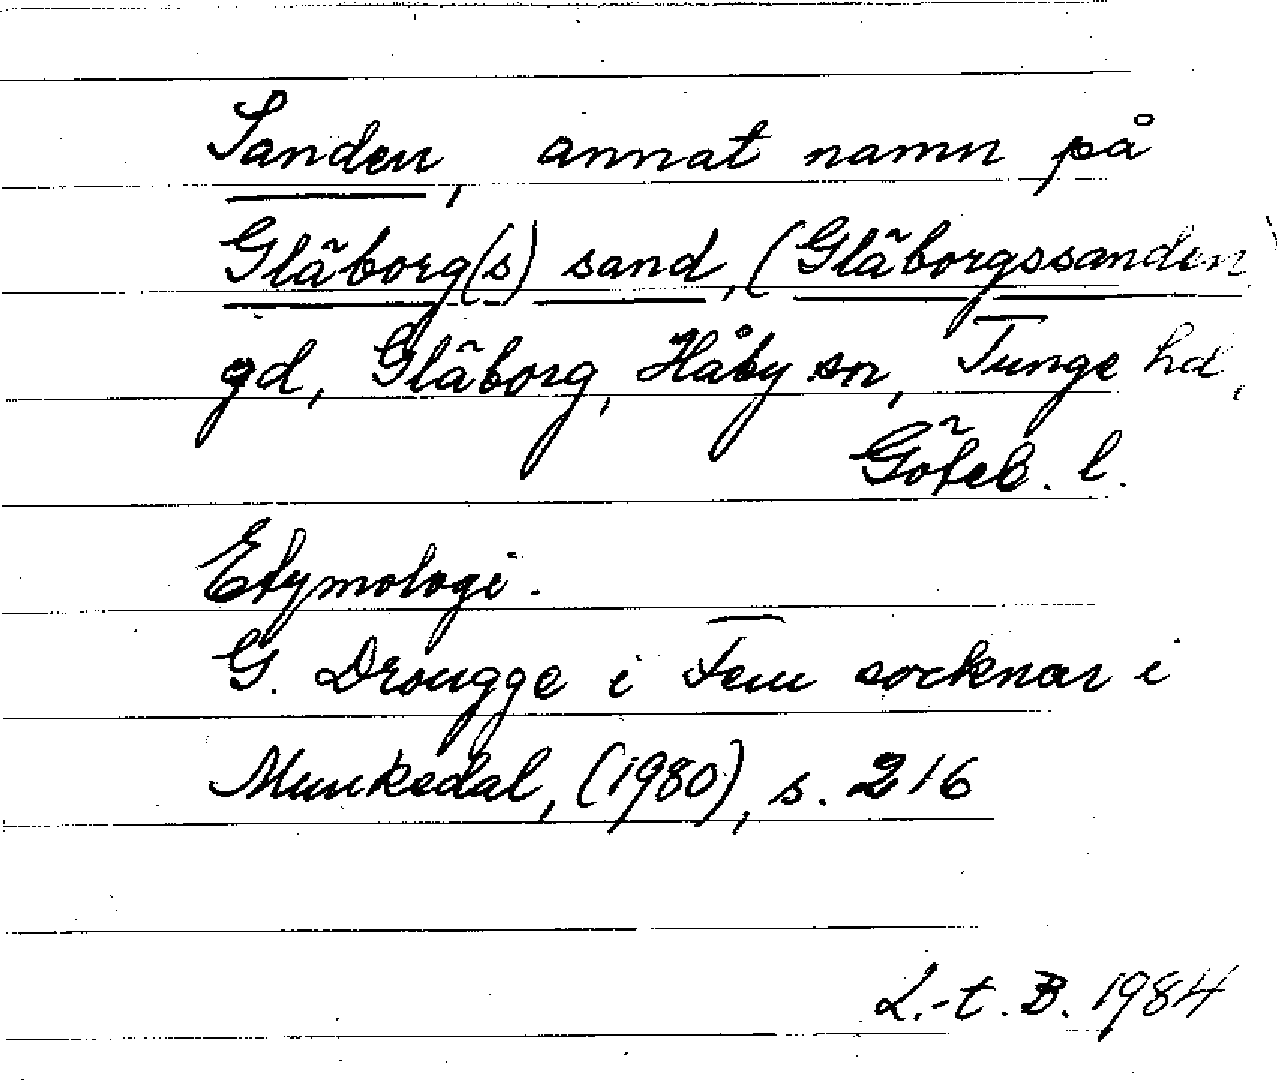 Sanden, annat namn på
Gläborg(s) sand, (Gläborgssanden)
gd, Gläborg, Håby sn, Tunge hd,
Göteb. l.
Etymologi.
G. Drougge i Fem socknar i
Munkedal, (1980), s. 216
L.-t. B. 1984